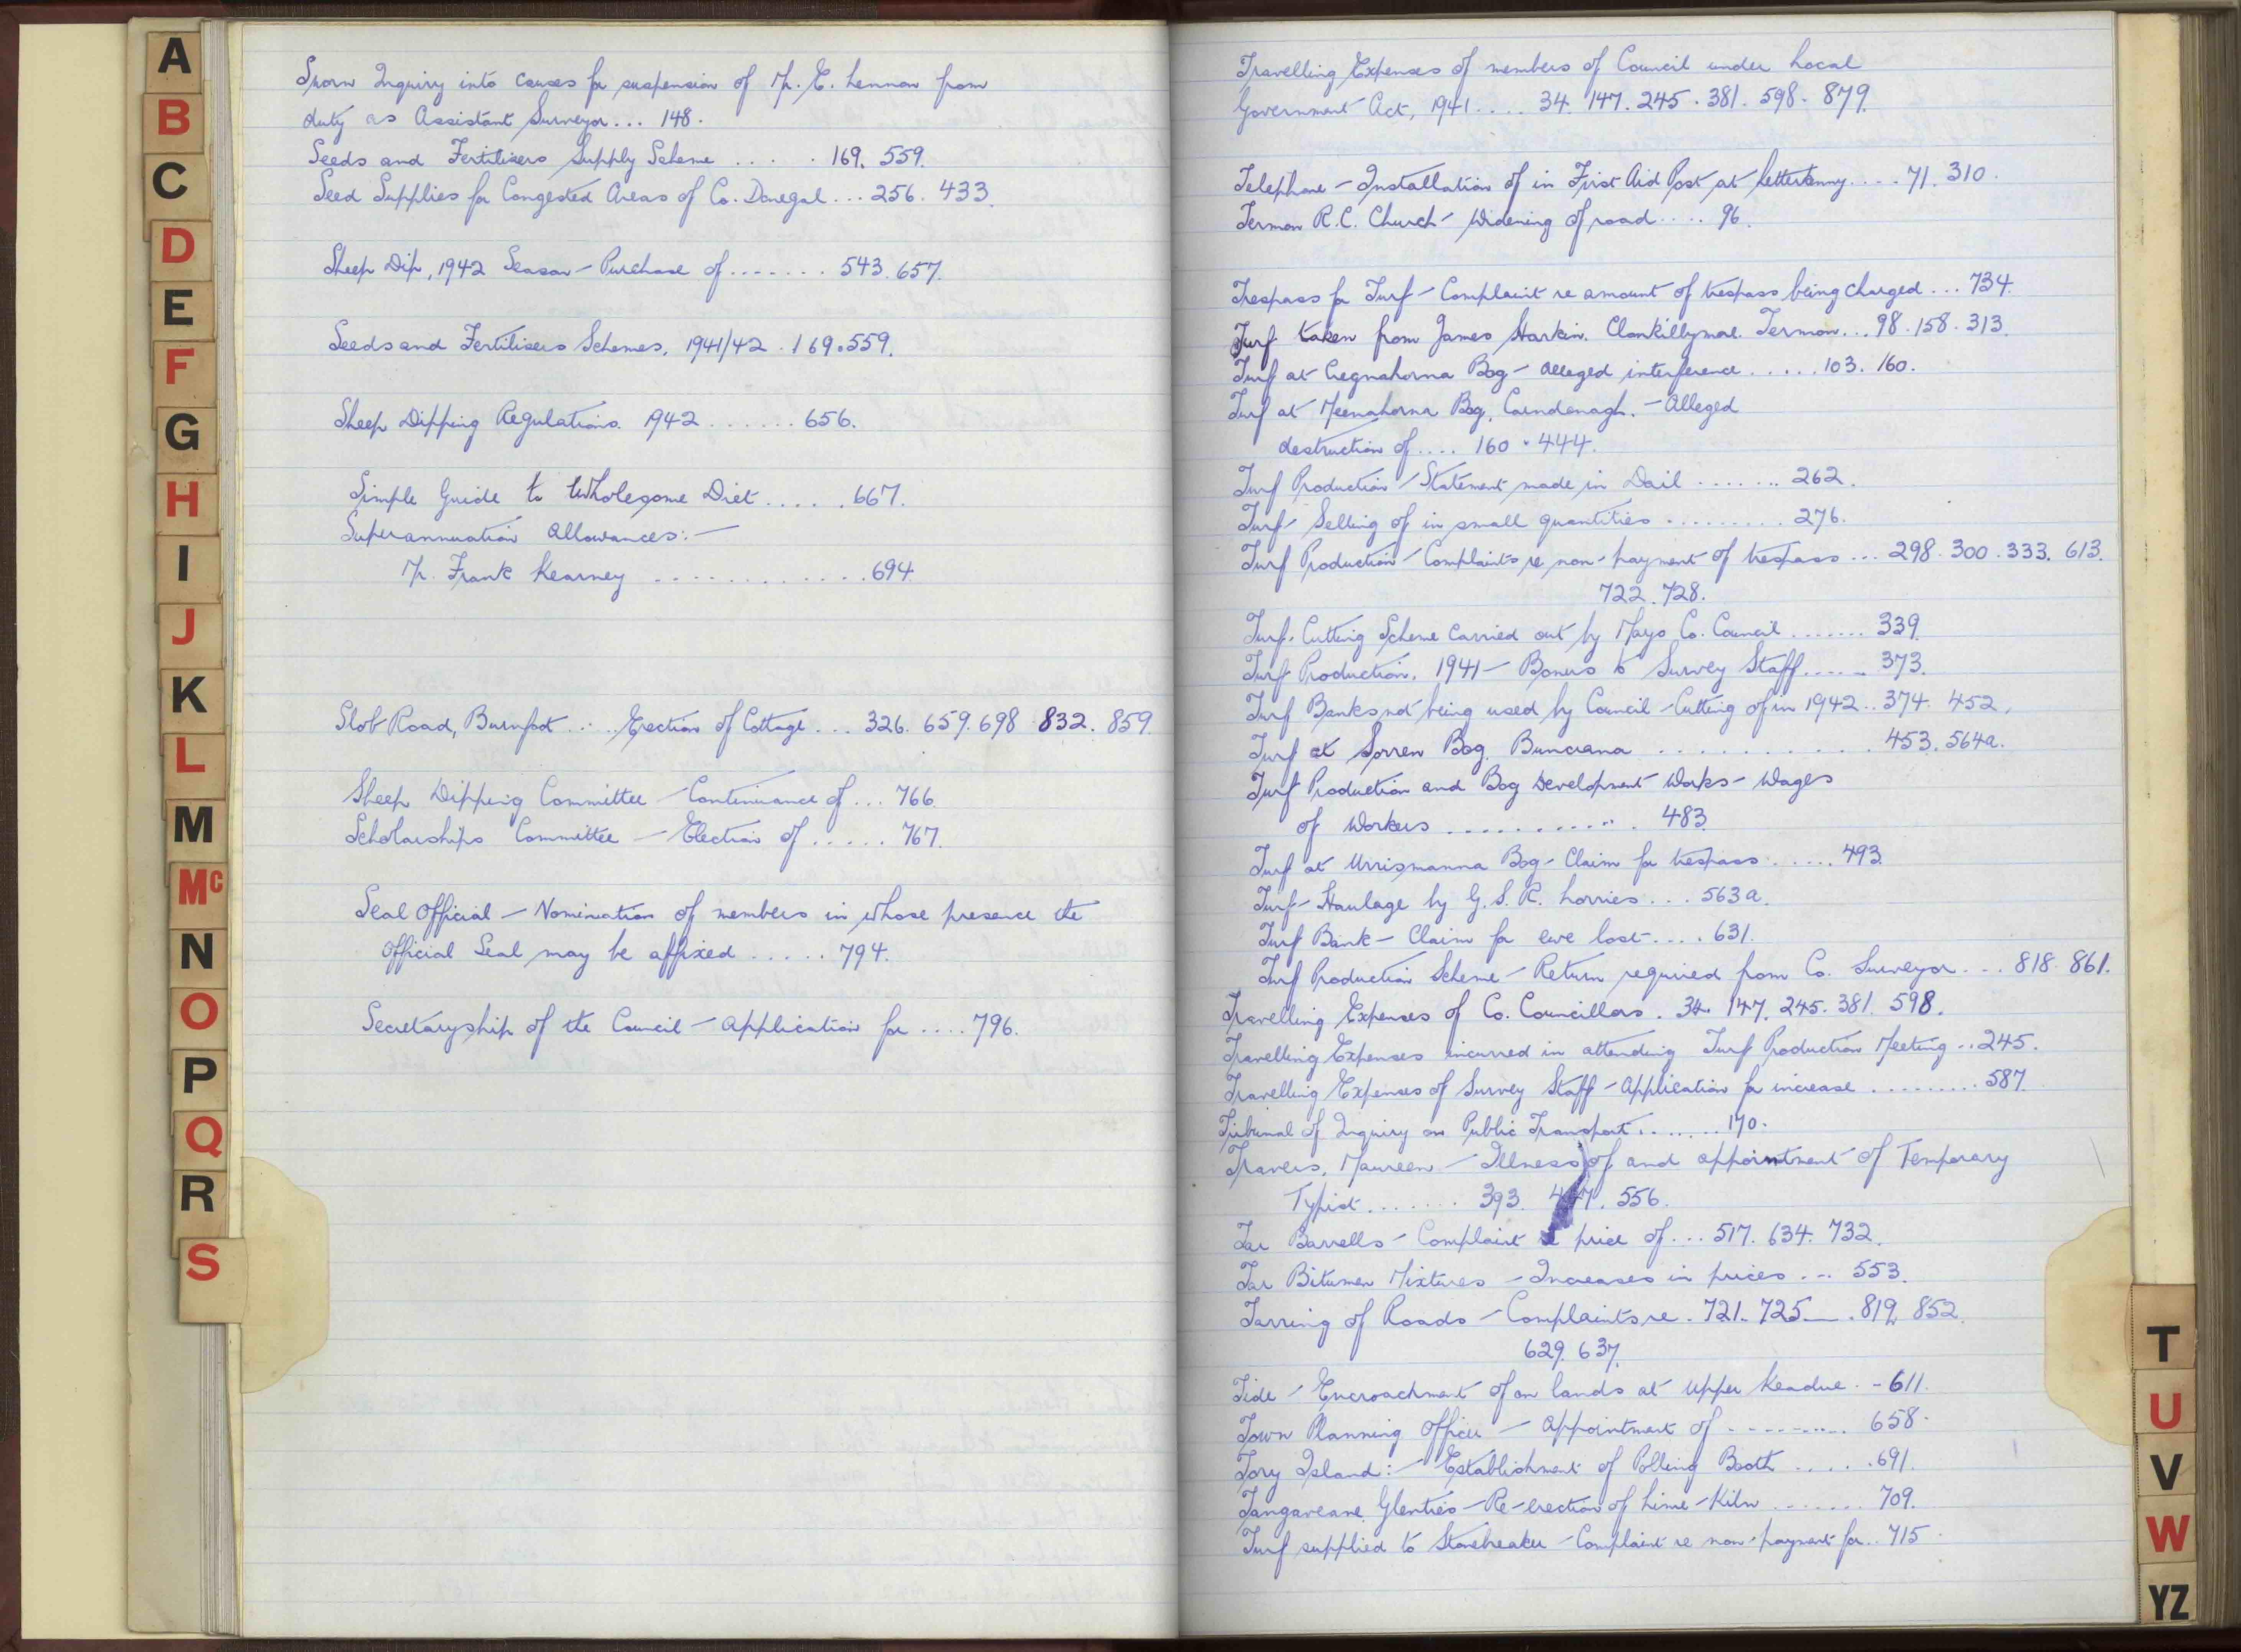 A
B
C
D
E
F
G
H
I
J
K
L
M
Mc
N
O
P
Q
R
S
Sworn Inquiry into causes for suspension of Mr. E. Lennon from
duty as Assistant Surveyor... 148.
Seeds and Fertilisers Supply Scheme .... 169. 559.
Seed Supplies for Congested Areas of Co. Donegal... 256. 433.
Sheep Dip, 1942 Season - Purchase of....... 543. 657.
Seeds and Fertilisers Schemes, 1941/42 . 169.559.
Sheep Dipping Regulations. 1942 ...... 656.
Simple Guide to Wholesome Diet..... 667.
Superannuation Allowances:-
Mr. Frank Kearney ............ 694.
Slob Road, Burnfoot .... Erection of Cottage ... 326. 659. 698 832. 859.
Sheep Dipping Committee - Continuance of... 766.
Scholarships Committee - Election of ..... 767.
Seal Official - Nomination of members in whose presence the
Official Seal may be affixed ..... 794.
Secretaryship of the Council - Application for .... 796.
Travelling Expenses of members of Council under Local
Government Act, 1941.... 34. 147. 245. 381. 598. 879.
Telephone - Installation of in First Aid Post at Letterkenny.... 71. 310.
Termon R.C. Church - Widening of road.... 96.
Trespass for Turf - Complaint re amount of trespass being charged... 734.
Turf taken from James Harkin. Termon... 98. 158. 313.
Turf at Cregnahorna Bog - Alleged interference..... 103. 160.
Turf at Meenahorna Bog, - Alleged
destruction of.... 160. 444.
Turf Production - Statement made in Dail ....... 262.
Turf - Selling of in small quantities ......... 276.
Turf Production - Complaints re non-payment of trespass... 298. 300. 333. 613.
722. 728.
Turf. Cutting Scheme Carried out by Mayo Co. Council....... 339.
Turf Production, 1941 - Bonus to Survey Staff...... 373.
Turf Banks not being used by Council - Cutting of in 1942.. 374. 452.
Turf at Sorren Bog, Buncrana ........... 453. 564a.
Turf Production and Bog Development Works - Wages
of Workers ............ 483.
Turf at Urrismanna Bog - Claim for trespass ..... 493.
Turf - Haulage by G.S.R. Lorries... 563a.
Turf Bank - Claim for ewe lost.... 631.
Turf Production Scheme - Return required from Co. Surveyor... 818. 861.
Travelling Expenses of Co. Councillors. 34. 147. 245. 381. 598.
Travelling Expenses incurred in attending Turf Production Meeting.. 245.
Travelling Expenses of Survey Staff - Application for increase ......... 587.
Tribunal of Inquiry on Public Transport....... 170.
Travers, Maureen - Illness of and appointment of Temporary
Typist....... 393. 447. 556.
Tar Barrells - Complaint re price of... 517. 634. 732.
Tar Bitumen Mixtures - Increases in prices... 553.
Tarring of Roads - Complaints re. 721. 725. 819. 852.
629. 637.
Tide - Encroachment of on lands at Upper Keadue.. 611.
Town Planning Officer - Appointment of .......... 658.
Tory Island:- Establishment of Polling Booth ..... 691.
Tangaveane, Glenties - Re-erection of Lime-Kiln ....... 709.
Turf supplied to Stonebreaker - Complaint re non-payment for.. 715.
T
U
V
W
YZ